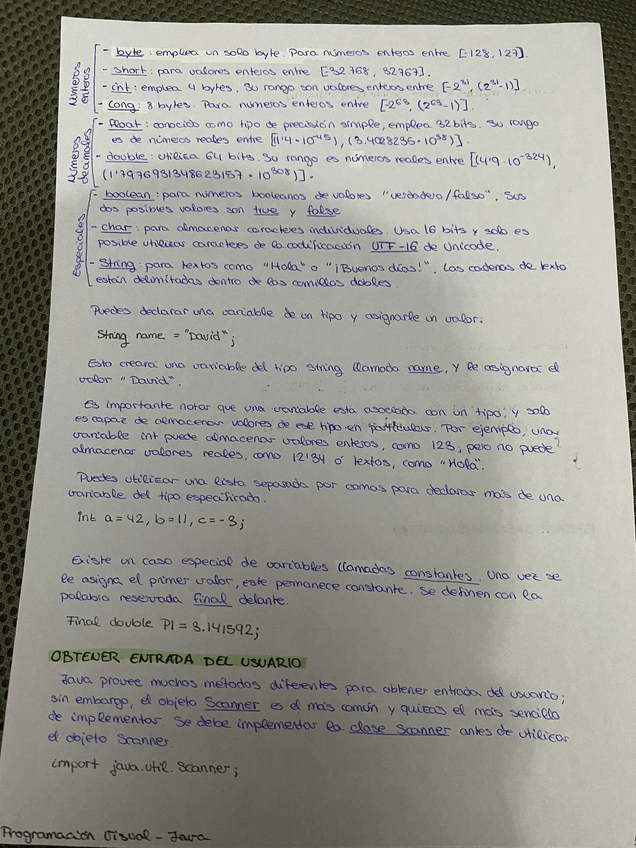 Números enteros
- byte: emplea un solo byte. Para números enteros entre [-128, 127].
- short: para valores enteros entre [-32768, 32767].
- int: emplea 4 bytes. Su rango son valores enteros entre [-2³¹, (2³¹-1)]
- Long: 8 bytes. Para números enteros entre [-2⁶³, (2⁶³-1)].
Números decimales
- float: conocido como tipo de precisión simple, emplea 32 bits. Su rango
es de números reales entre [1'4·10⁻⁴⁵), (3.4028235·10³⁸)].
- double: utiliza 64 bits. Su rango es números reales entre [(4'9·10⁻³²⁴),
(1'7976931348623157·10³⁰⁸)].
Especiales
- boolean: para números booleanos de valores "verdadero/falso". Sus
dos posibles valores son true y false
- char: para almacenar caracteres individuales. Usa 16 bits y solo es
posible utilizar caracteres de la codificación UTF-16 de Unicode.
- String: para textos como "Hola" o "¡Buenos días!". Las cadenas de texto
están delimitadas dentro de las comillas dobles.
Puedes declarar una variable de un tipo y asignarle un valor:
String name = "David";
Esto creará una variable del tipo string llamada name, y le asignará el
valor "David".
Es importante notar que una variable está asociada con un tipo, y solo
es capaz de almacenar valores de ese tipo en particular. Por ejemplo, una
variable int puede almacenar valores enteros, como 123; pero no puede
almacenar valores reales, como 12'34 ó textos, como "Hola".
Puedes utilizar una lista separada por comas para declarar más de una
variable del tipo especificado.
int a=42, b=11, c=-3;
Existe un caso especial de variables llamadas constantes. Una vez se
le asigna el primer valor, este permanece constante. Se definen con la
palabra reservada final delante.
Final double PI = 3.141592;
OBTENER ENTRADA DEL USUARIO
Java provee muchos métodos diferentes para obtener entrada del usuario;
sin embargo, el objeto Scanner es el más común y quizás el más sencillo
de implementar. Se debe implementar la clase Scanner antes de utilizar
el objeto Scanner.
import java.util.Scanner;
Programación Visual - Java